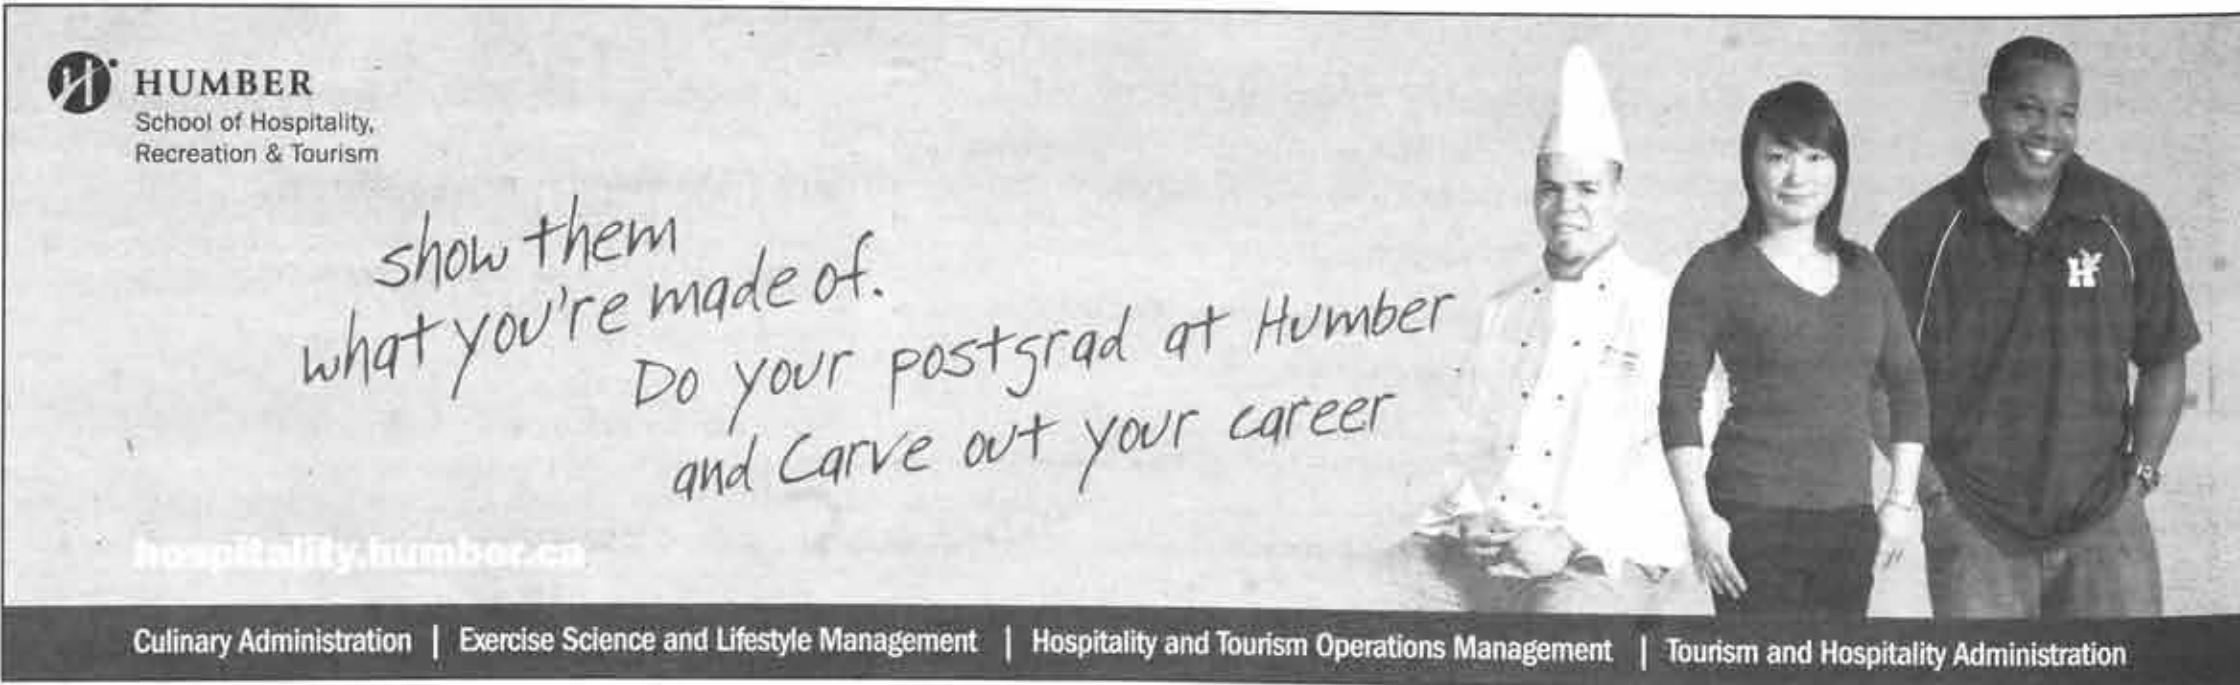 HUMBER
School of Hospitality,
Recreation & Tourism
show them
what you're made of.
Do your postgrad at Humber
and Carve out your career
hospitality.humber.ca
Culinary Administration | Exercise Science and Lifestyle Management | Hospitality and Tourism Operations Management | Tourism and Hospitality Administration